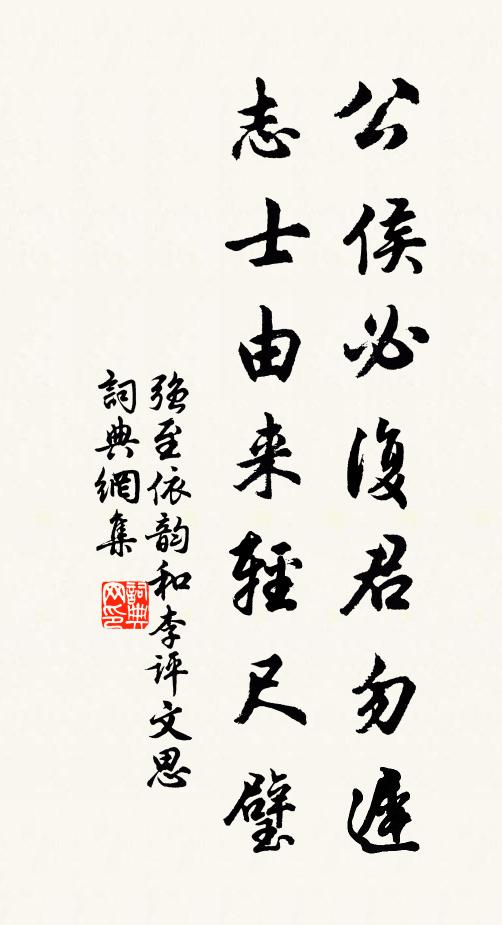 公侯必復君勿遲
志士由来輕尺璧
强至依韵和李評文思
詞典網集
詞典网印